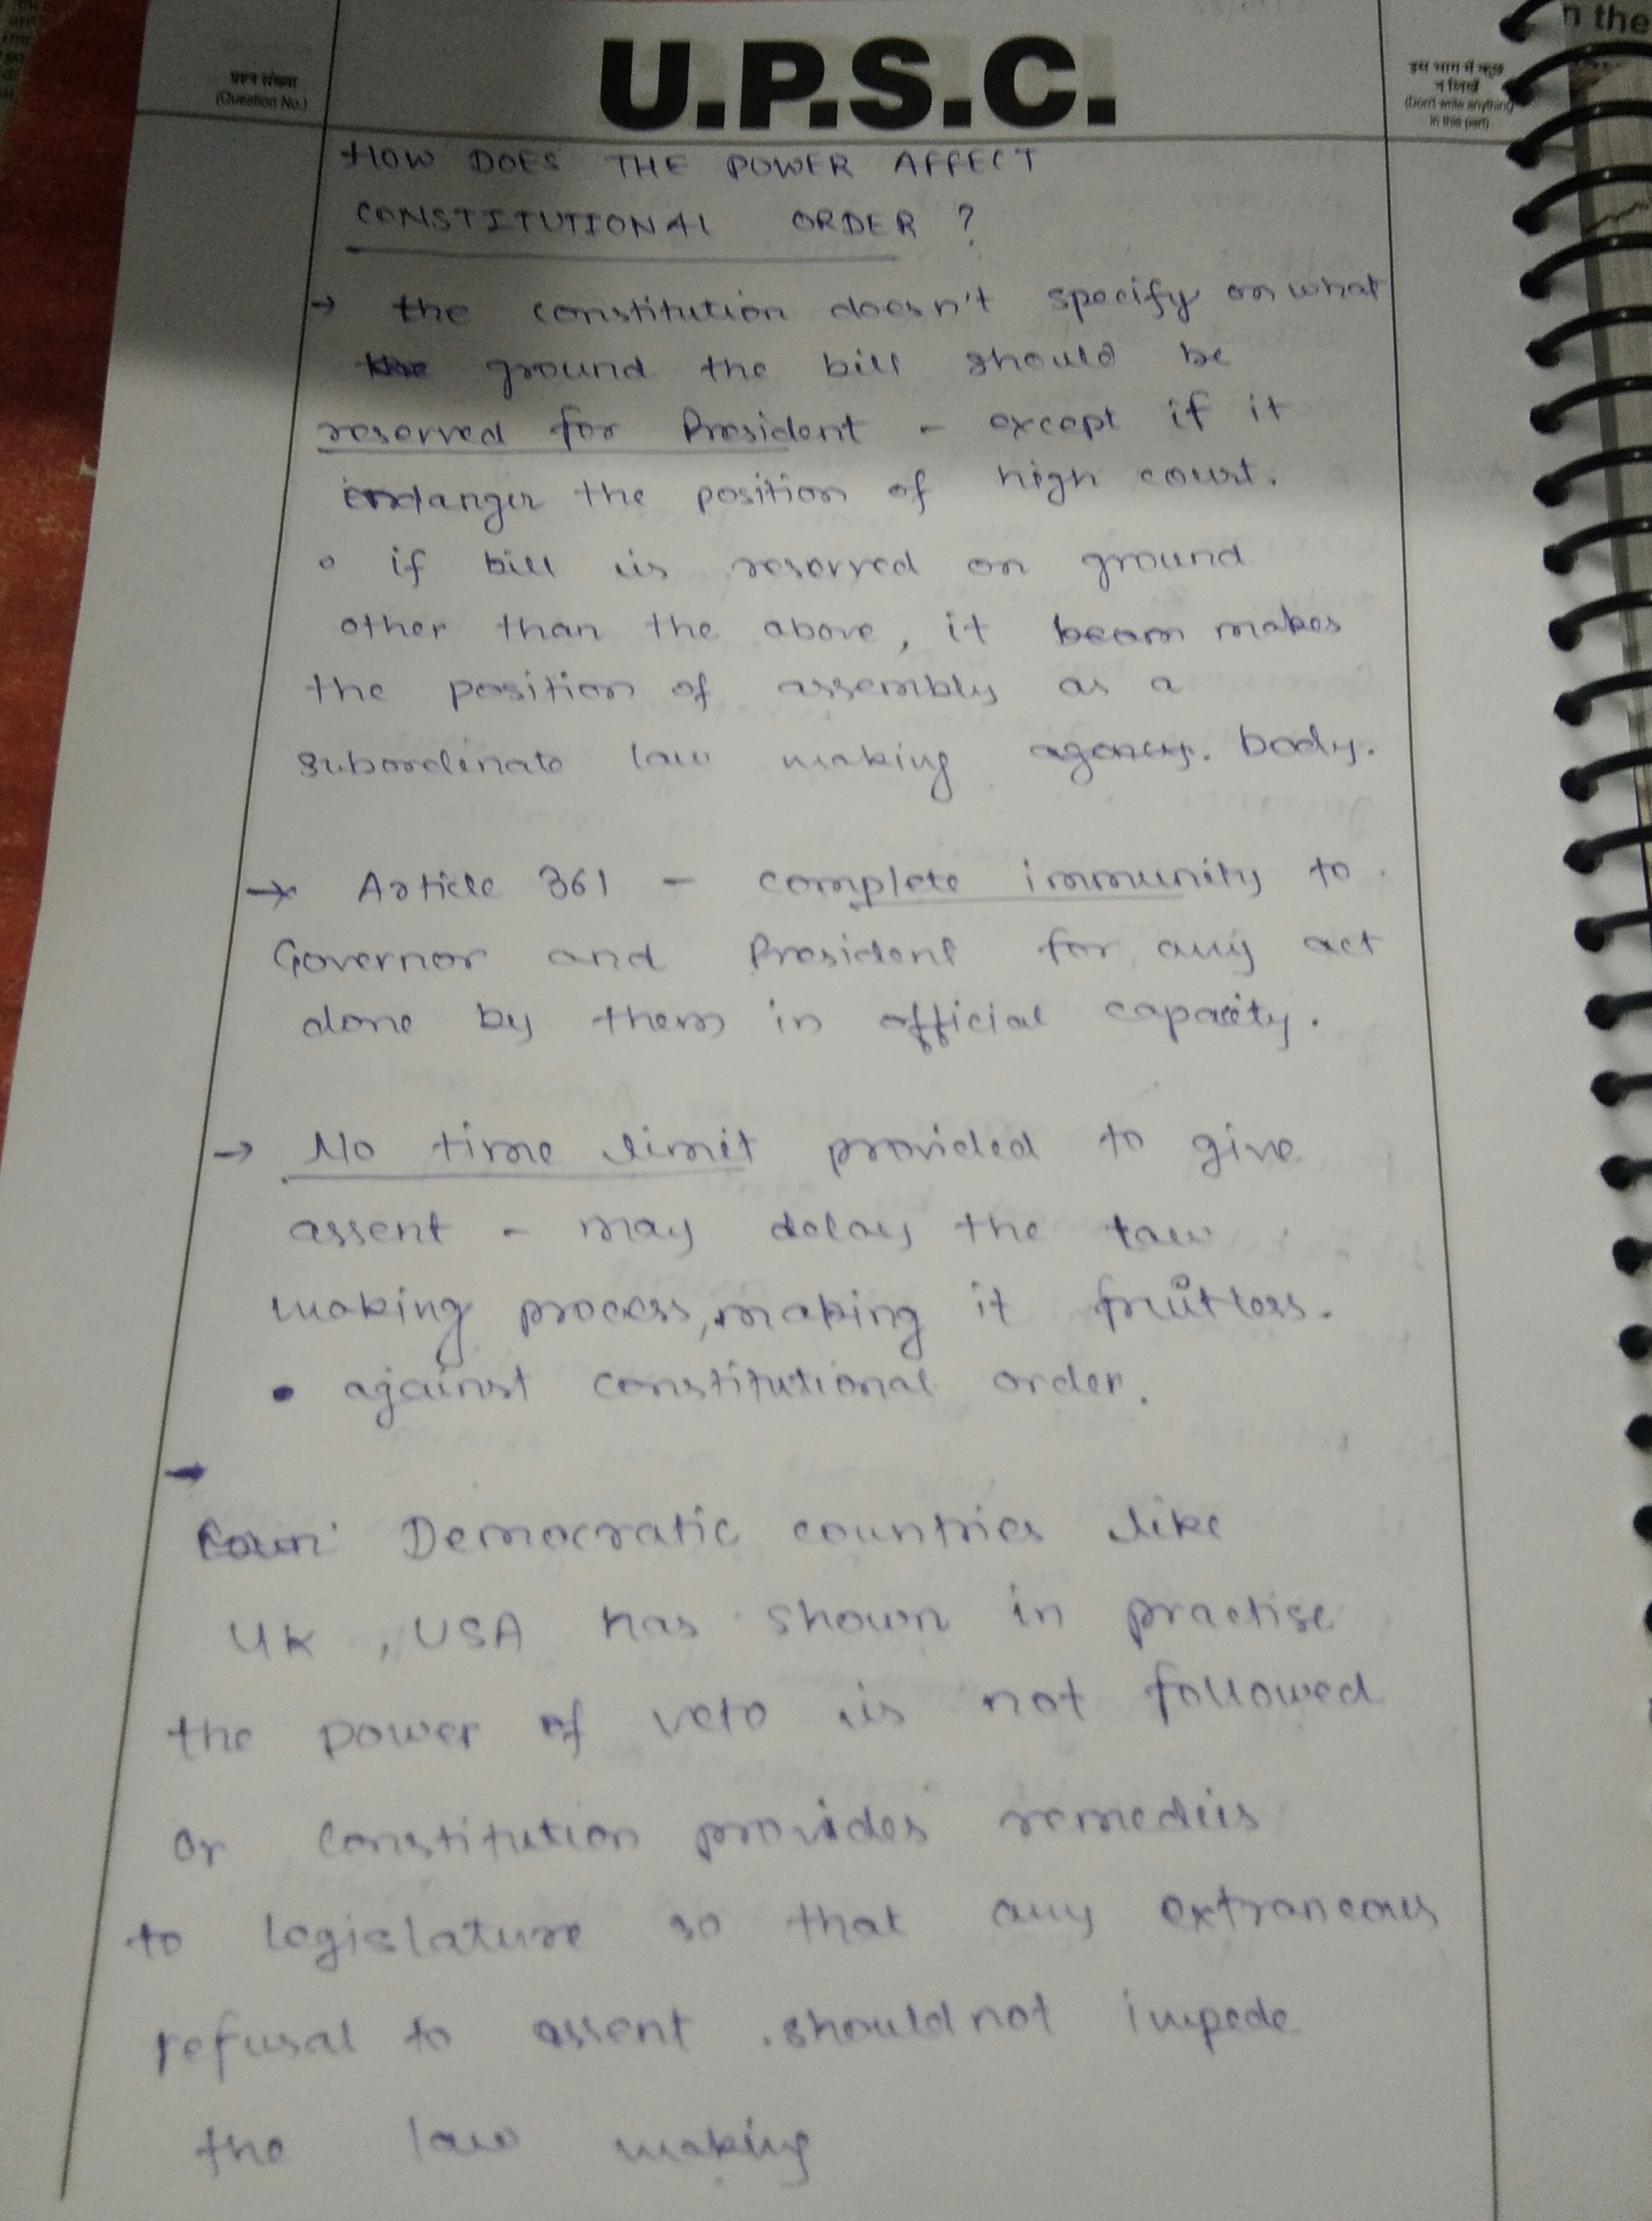 प्रश्न संख्या
(Question No.)
U.P.S.C.
इस भाग में कुछ
न लिखें
(Don't write anything
in this part)
n the
HOW DOES THE POWER AFFECT
CONSTITUTIONAL ORDER ?
→ the constitution doesn't specify on what
ground the bill should be
reserved for President - except if it
endanger the position of high court.
o if bill is reserved on ground
other than the above, it makes
the position of assembly as a
subordinate law making agency. body.
→ Article 361 - complete immunity to
Governor and President for any act
done by them in official capacity.
→ No time limit provided to give
assent - may delay the law
making process, making it fruitless.
• against constitutional order.
→
Democratic countries like
UK, USA has shown in practise
the power of veto is not followed
or constitution provides remedies
to legislature so that any extraneous
refusal to assent should not impede
the law making